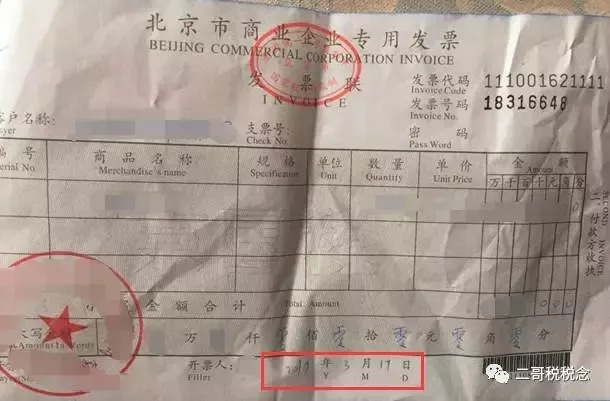 北京市商业企业专用发票
BEIJING COMMERCIAL CORPORATION INVOICE
发票联
INVOICE
发票代码 111001621111
Invoice Code
发票号码 18316648
Invoice No.
客户名称: 支票号: 密码
ayer Check No. Pass Word
编号 商品名称 规格 单位 数量 单价 金额
erial No. Merchandise's name Specification Unit Quantity Unit Price Amount
万千百十元角分
二付款方收执
INVOICE
金额合计
Total Amount
大写
Amount In Words
万 仟 佰 零 拾 零 元 零 角 零 分
开票人: 年 3 月 17 日
Filler Y M D
二哥税税念